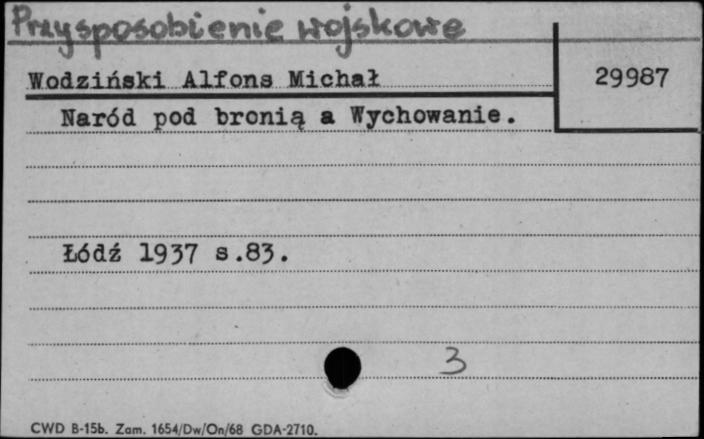 Przysposobienie wojskowe
Wodziński Alfons Michał
29987
Naród pod bronią a Wychowanie.
Łódź 1937 s.83.
3
CWD B-15b. Zam. 1654/Dw/On/68 GDA-2710.